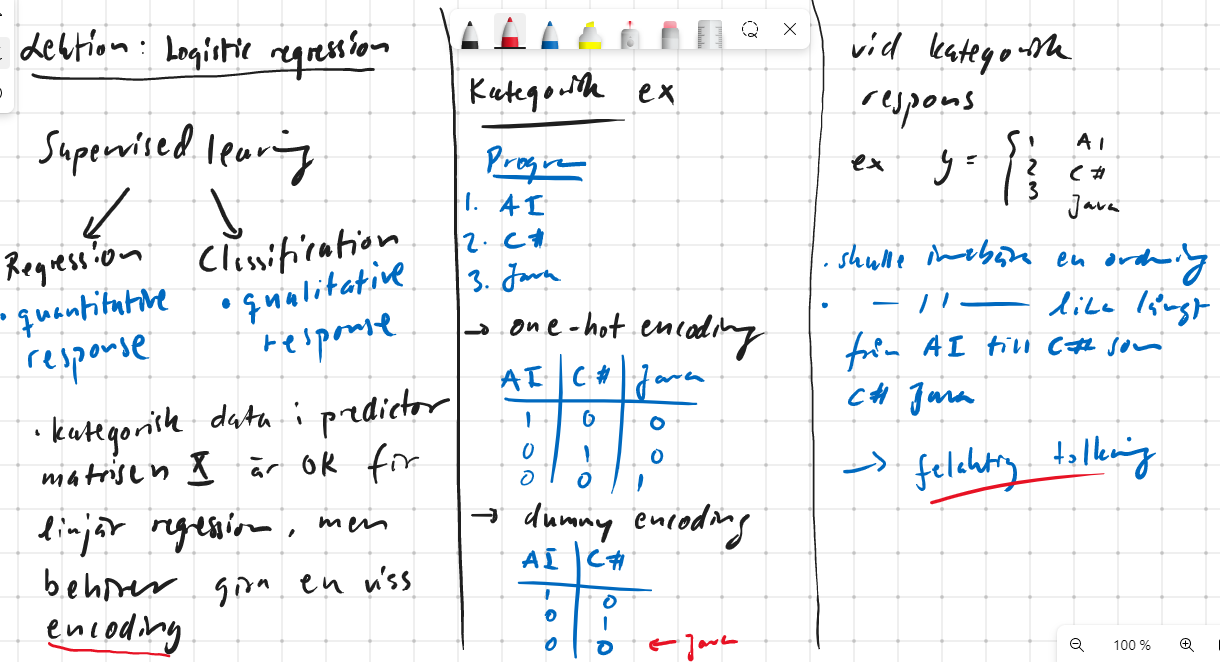 Lektion: Logistic regression
Supervised learing
Regression
• quantitative
response
Classification
• qualitative
response
• kategorisk data i predictor
matrisen X är OK för
linjär regression, men
behöver göra en viss
encoding
Kategorisk ex
Progr
1. AI
2. C#
3. Java
→ one-hot encoding
AI C# Java
1 0 0
0 1 0
0 0 1
→ dummy encoding
AI C#
1 0
0 1
0 0 ← Java
vid kategorisk
respons
ex y = { 1 AI
2 C#
3 Java
• skulle innebära en ordning
• — 11 — lika långt
från AI till C# som
C# Java
→ felaktig tolkning
100 %